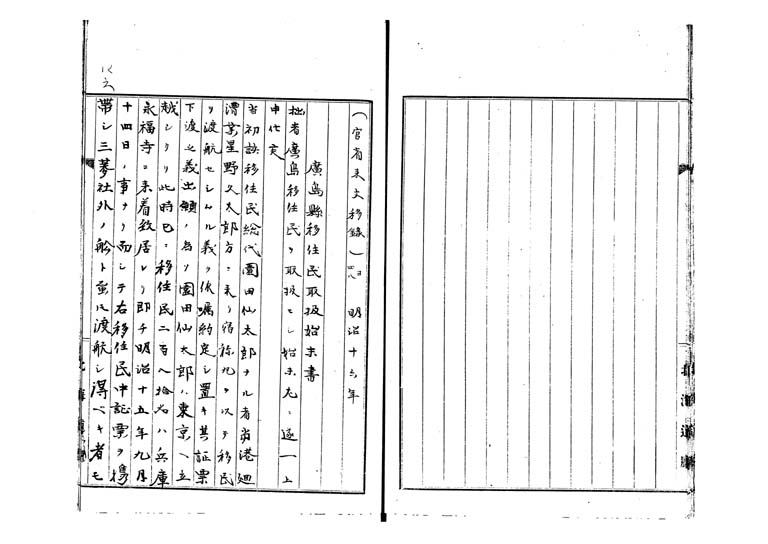 （官省来文移録） 明治十六年
廣島縣移住民取扱始末書
拙者廣島移住民ヲ取扱ヒシ始末左ニ逐一上
申仕候
当初該移住民総代園田仙太郎ナル者当港廻
漕業星野又太郎方ニ来リ宿祢丸ヲ以テ移民
ヲ渡航セシムル義ヲ依嘱約定シ置キ其証票
下渡之義出願ノ為メ園田仙太郎ハ東京ヘ立
越シタリ此時已ニ移住民二百八拾名ハ兵庫
永福寺ニ来着致居レリ即チ明治十五年九月
十四日ノ事ナリ而シテ右移住民中証票ヲ携
帯シ三菱社外ノ船ト虽モ渡航シ得ベキ者モ
北海道廳